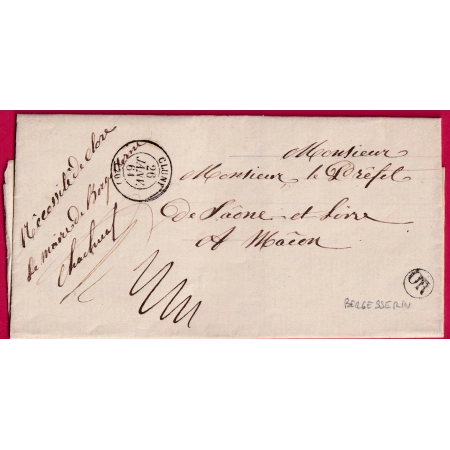 Nécessité de clore
Le maire de Bergesserin
Monsieur
Monsieur le Préfet
de Saône et Loire
A Mâcon
CLUNY
26
JANV.
64
OR
BERGESSERIN